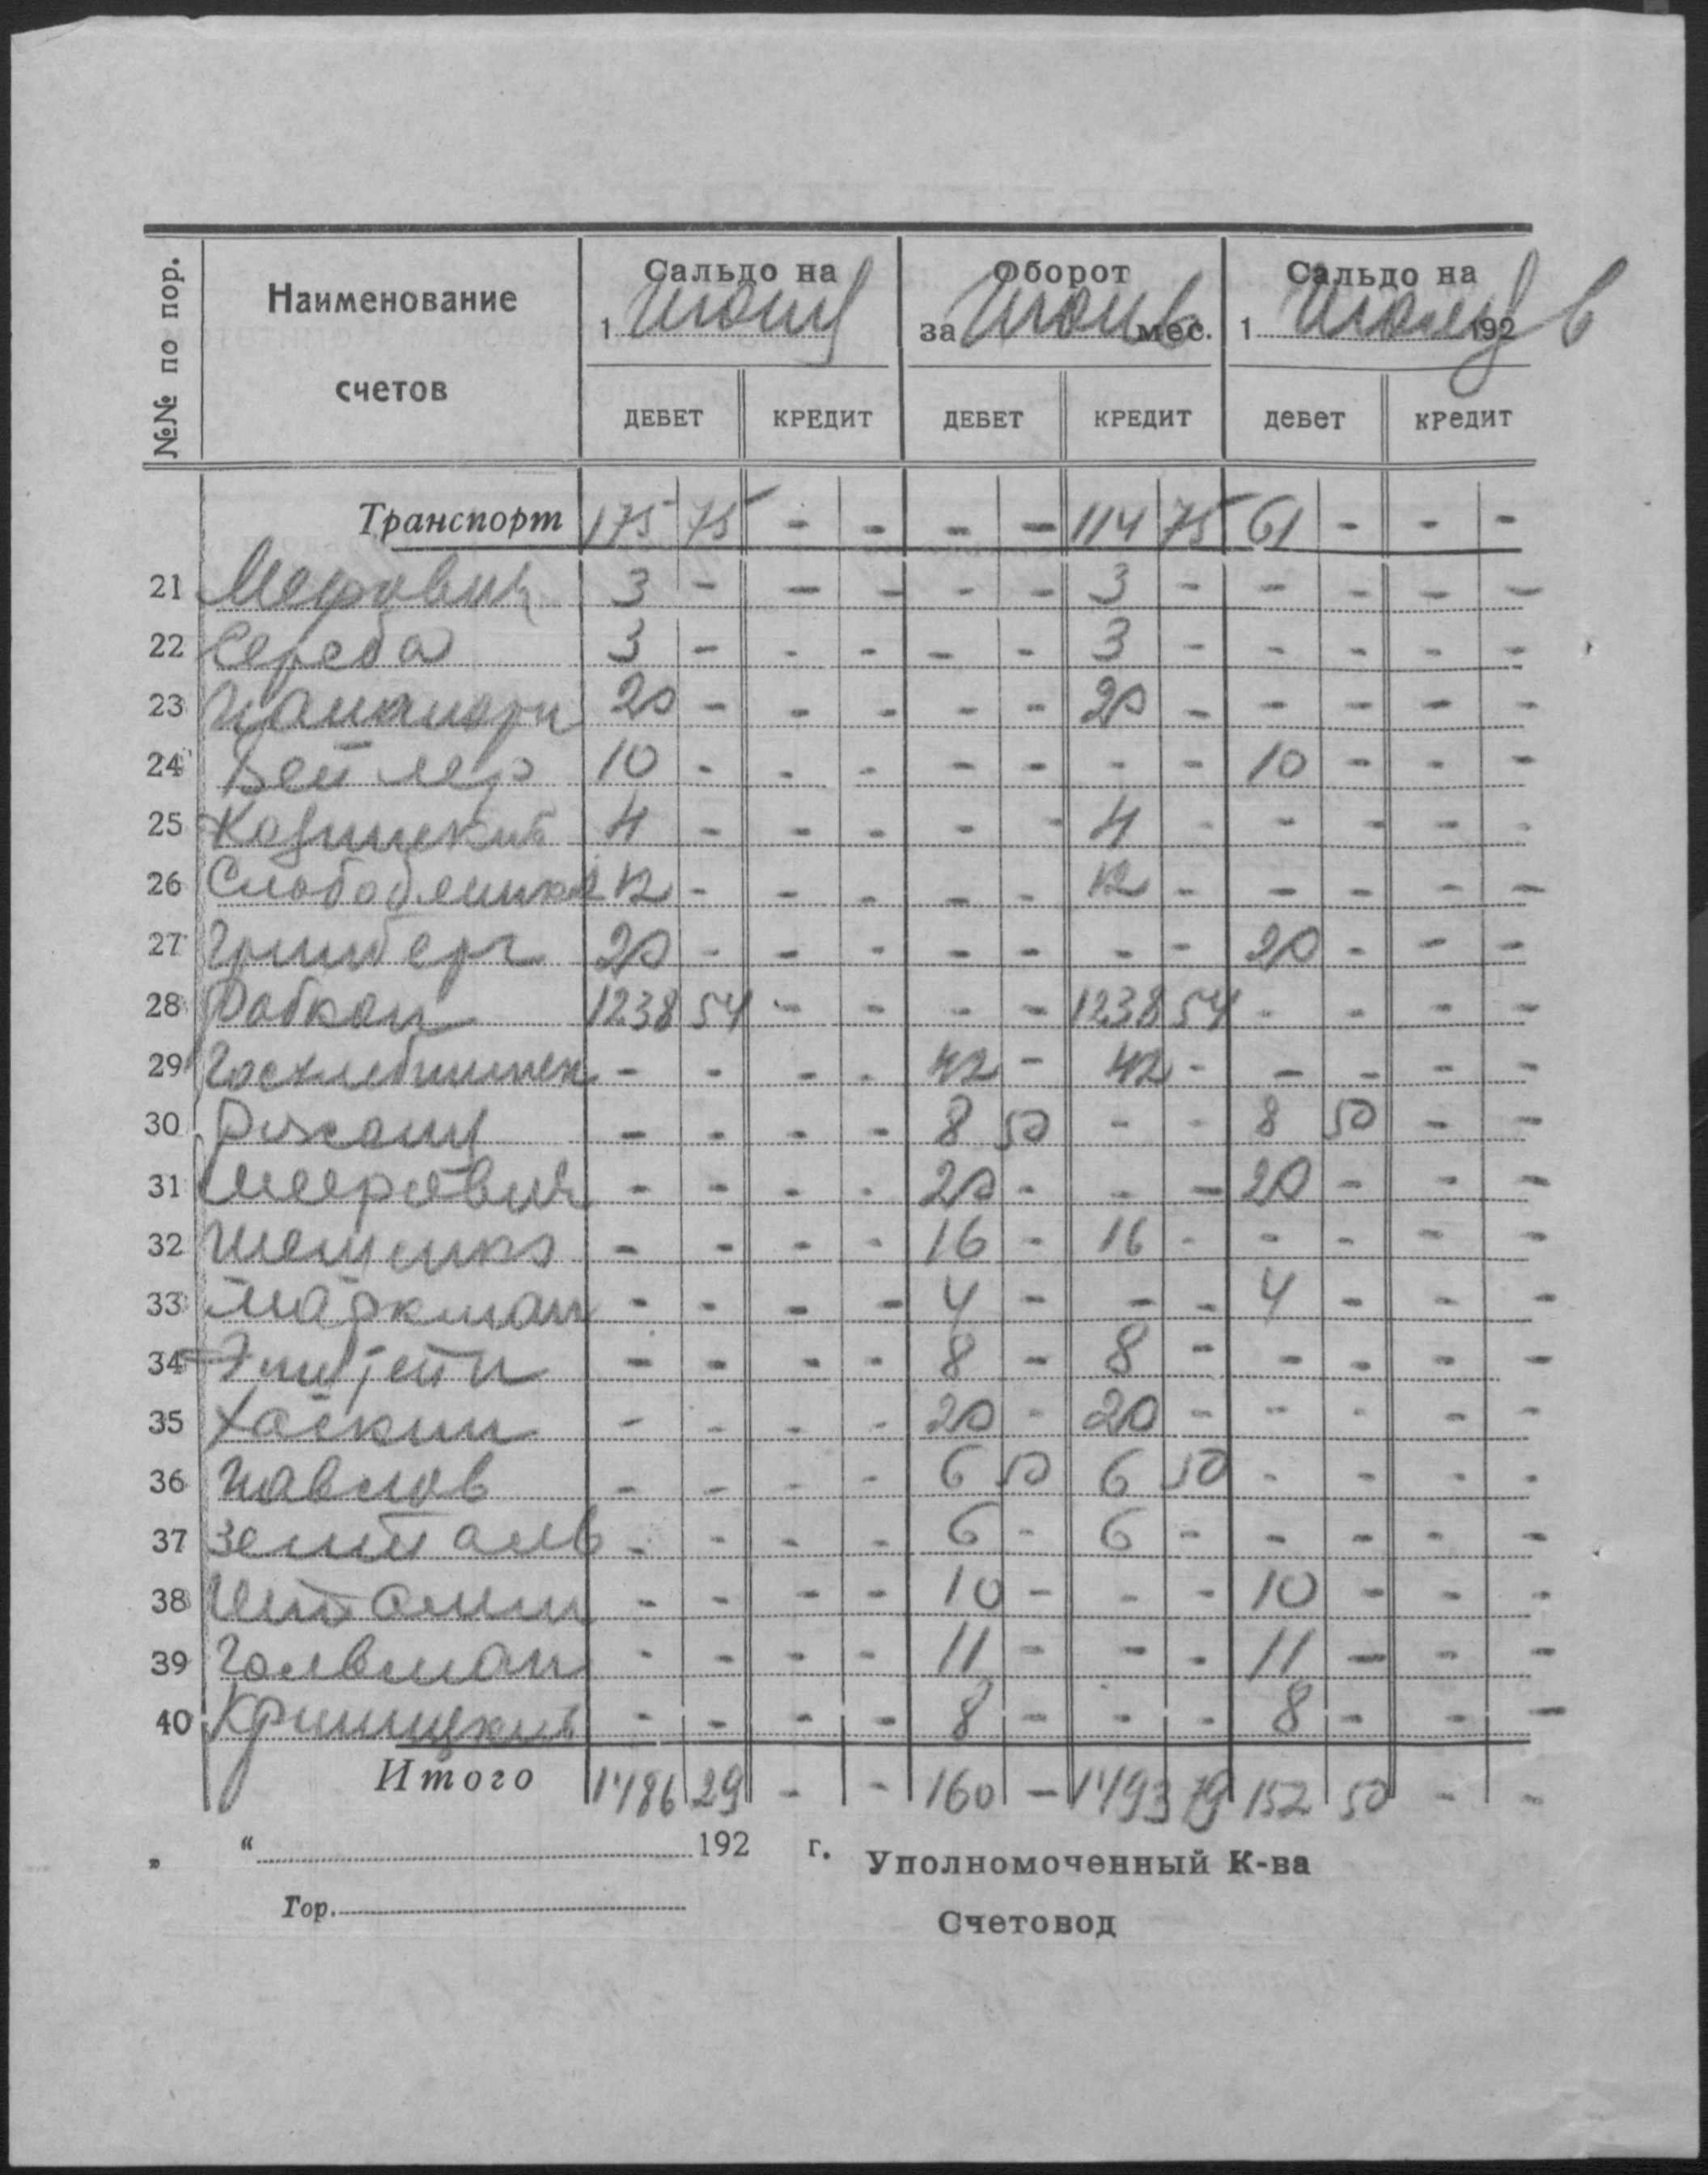 №№ по пор. Наименование счетов Сальдо на 1 Июня Оборот за Июнь мес. Сальдо на 1 Июля 1926
ДЕБЕТ КРЕДИТ ДЕБЕТ КРЕДИТ ДЕБЕТ КРЕДИТ
Транспорт 175 75 - - - - 114 75 61 - - -
21 Мерович 3 - - - - - 3 - - - - -
22 Середа 3 - - - - - 3 - - - - -
23 20 - - - - - 20 - - - - -
24 Бейлер 10 - - - - - - - 10 - - -
25 4 - - - - - 4 - - - - -
26 12 - - - - - 12 - - - - -
27 Гринберг 20 - - - - - - - 20 - - -
28 Рабкоп 1238 54 - - - - 1238 54 - - - -
29 - - - - 42 - 42 - - - - -
30 - - - - 8 50 - - 8 50 - -
31 Меерович - - - - 20 - - - 20 - - -
32 - - - - 16 - 16 - - - - -
33 Маркман - - - - 4 - - - 4 - - -
34 - - - - 8 - 8 - - - - -
35 Хаскин - - - - 20 - 20 - - - - -
36 Павлов - - - - 6 50 6 50 - - - -
37 - - - - 6 - 6 - - - - -
38 - - - - 10 - - - 10 - - -
39 - - - - 11 - - - 11 - - -
40 Криницкий - - - - 8 - - - 8 - - -
Итого 1486 29 - - 160 - 1493 79 152 50 - -
„ “ 192 г. Уполномоченный К-ва
Гор. Счетовод